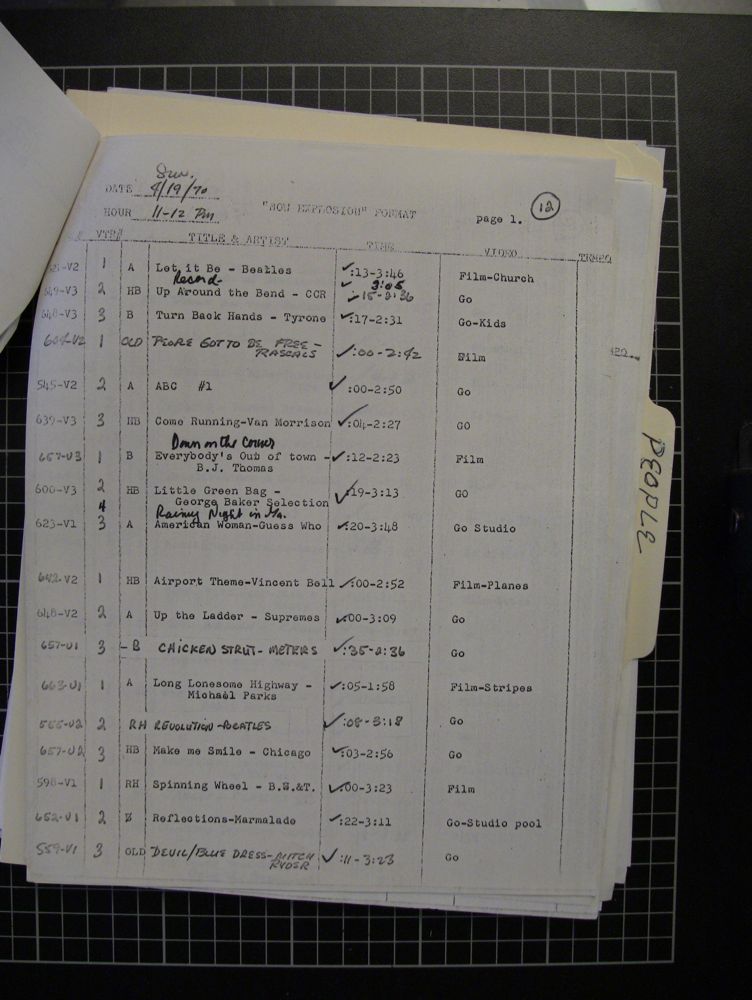 Sun.
DATE 4/19/70
HOUR 11-12 PM
"NOW EXPLOSION" FORMAT
page 1. 12
VTR# TITLE & ARTIST TIME VIDEO TEMPO
1 A Let it Be - Beatles :13-3:46 Film-Church
Record 3:05
2 HB Up Around the Bend - CCR Go
3 B Turn Back Hands - Tyrone :17-2:31 Go-Kids
604-V2 1 OLD PEOPLE GOT TO BE FREE - :00-2:42 Film
RASCALS
545-V2 2 A ABC #1 :00-2:50 Go
639-V3 3 HB Come Running-Van Morrison :04-2:27 GO
Down on the Corner
657-V3 1 B Everybody's Out of town - :12-2:23 Film
B.J. Thomas
600-V3 2 HB Little Green Bag - :19-3:13 GO
George Baker Selection
4 Rainy Night in Ga.
623-V1 3 A American Woman-Guess Who :20-3:48 Go Studio
642-V2 1 HB Airport Theme-Vincent Bell :00-2:52 Film-Planes
648-V2 2 A Up the Ladder - Supremes :00-3:09 Go
657-V1 3 - B CHICKEN STRUT - METERS :35-2:36 Go
663-V1 1 A Long Lonesome Highway - :05-1:58 Film-Stripes
Michael Parks
2 RH REVOLUTION -BEATLES :08-3:18 Go
657-V2 3 HB Make me Smile - Chicago :03-2:56 Go
598-V1 1 RH Spinning Wheel - B.S.&T. :00-3:23 Film
652-V1 2 Reflections-Marmalade :22-3:11 Go-Studio pool
559-V1 3 OLD DEVIL/BLUE DRESS- MITCH :11-3:23 Go
RYDER
PEOPLE